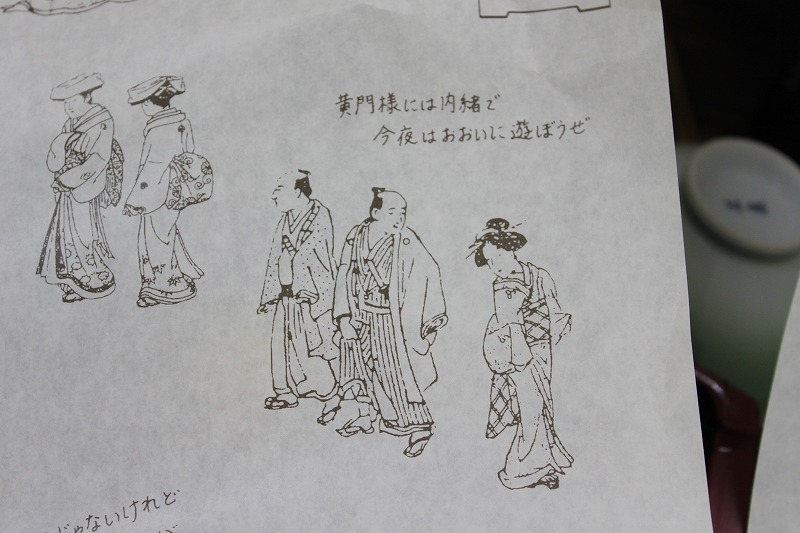 黄門様には内緒で
今夜はおおいに遊ぼうぜ
じゃないけれど